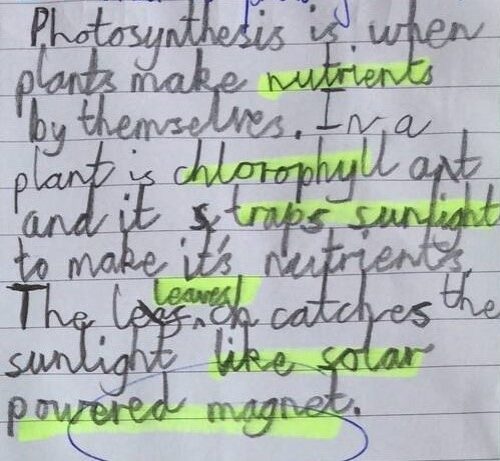 Photosynthesis is when
plants make nutrients
by themselves. In a
plant is chlorophyll ant
and it traps sunlight
to make it's nutrients.
The leaves catches the
sunlight like solar
powered magnet.